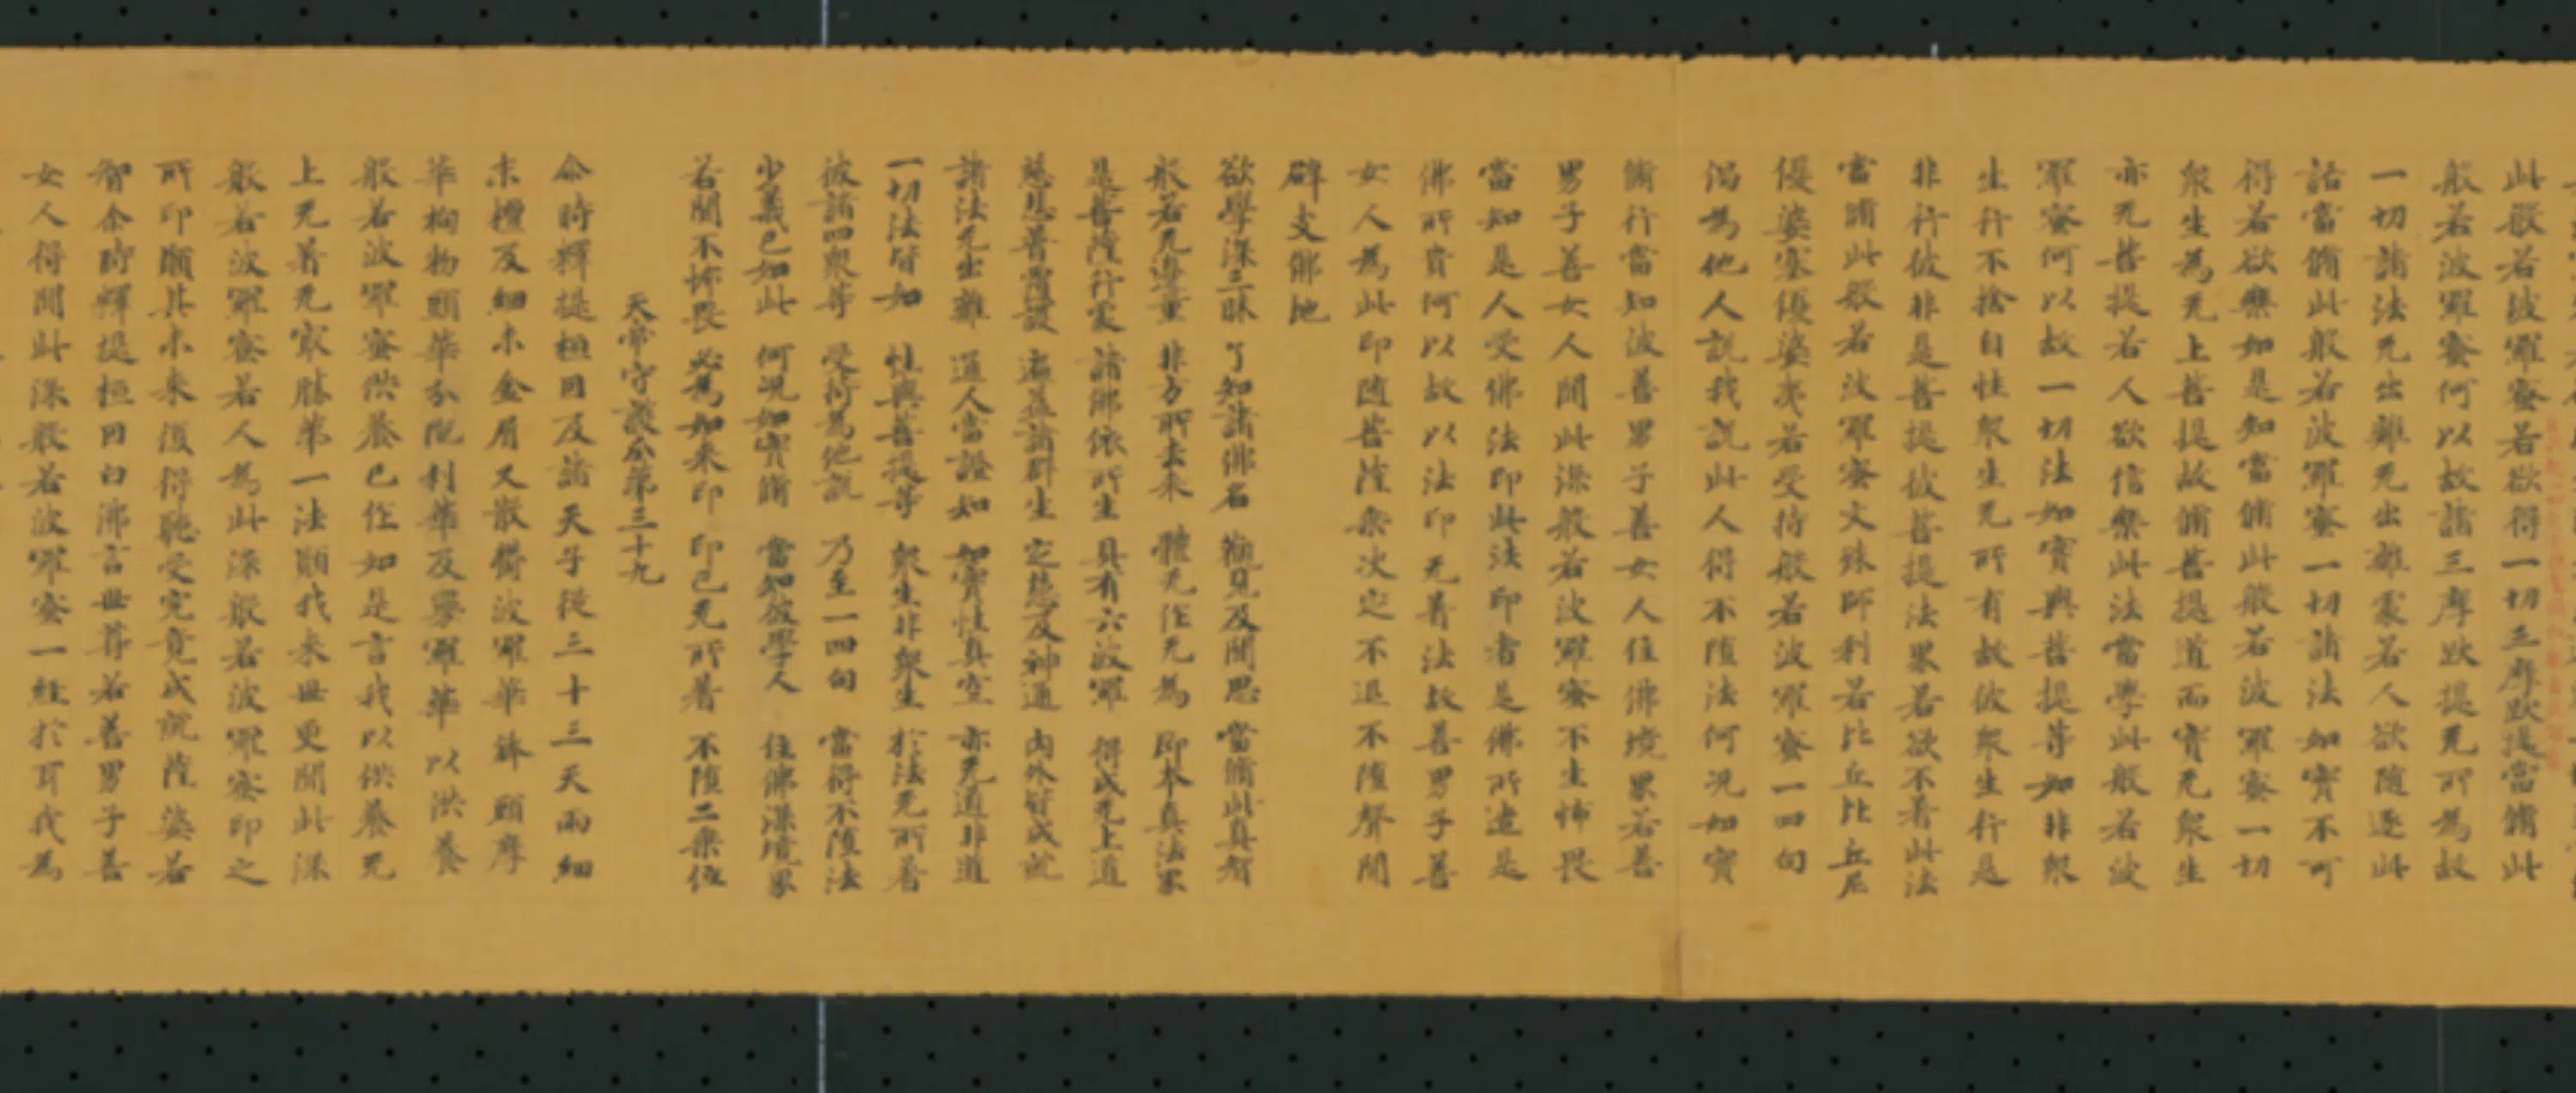 此般若波羅蜜若欲得一切三摩跋提當脩此
般若波羅蜜何以故諸三摩跋提无所為故
一切諸法无出離无出離處若人欲随逐此
話當脩此般若波羅蜜一切諸法如實不可
得若欲樂如是知當脩此般若波羅蜜一切
衆生為无上菩提故脩菩提道而實无衆生
亦无菩提若人欲信樂此法當學此般若波
羅蜜何以故一切法如實與菩提等如非衆
生行不捨自性衆生无所有故彼衆生行是
非行彼非是菩提彼菩提法界若欲不著此法
當脩此般若波羅蜜文殊師利若比丘比丘尼
優婆塞優婆夷若受持般若波羅蜜一四句
偈為他人說我說此人得不墮法何況如實
脩行當知彼善男子善女人住佛境界若善
男子善女人聞此深般若波羅蜜不生怖畏
當知是人受佛法印此法印者是佛所造是
佛所貴何以故以法印无著法故善男子善
女人為此印随菩薩乘决定不退不墮聲聞
辟支佛地
欲學深三昧 了知諸佛名 觀見及聞思 當脩此真智
般若无邊量 非方所去来 體无作无為 即本真法界
是菩薩行處 諸佛依所生 具有六波羅 得成无上道
慈悲善震設 遍益諸群生 定慧及神通 内外皆成就
諸法无出離 道人當證知 如實性真空 亦无道非道
一切法皆如 性與菩提等 衆生非衆生 於法无所著
彼諸四衆等 受持為他說 乃至一四句 當得不墮法
少義已如此 何況如實脩 當知彼學人 住佛深境界
若聞不怖畏 必為如来印 印已无所著 不墮二乘位
天帝守護分第三十九
尒時釋提桓因及諸天子從三十三天雨細
末檀及細末金屑又散欝波羅華鉢頭摩
華拘物頭華分陁利華及曼羅華以供養
般若波羅蜜供養已作如是言我以供養无
上无著无冣勝第一法願我来世更聞此深
般若波羅蜜若人為此深般若波羅蜜印之
所印願其未来復得聽受究竟成就薩婆若
智尒時釋提桓因白佛言世尊若善男子善
女人得聞此深般若波羅蜜一經於耳我為